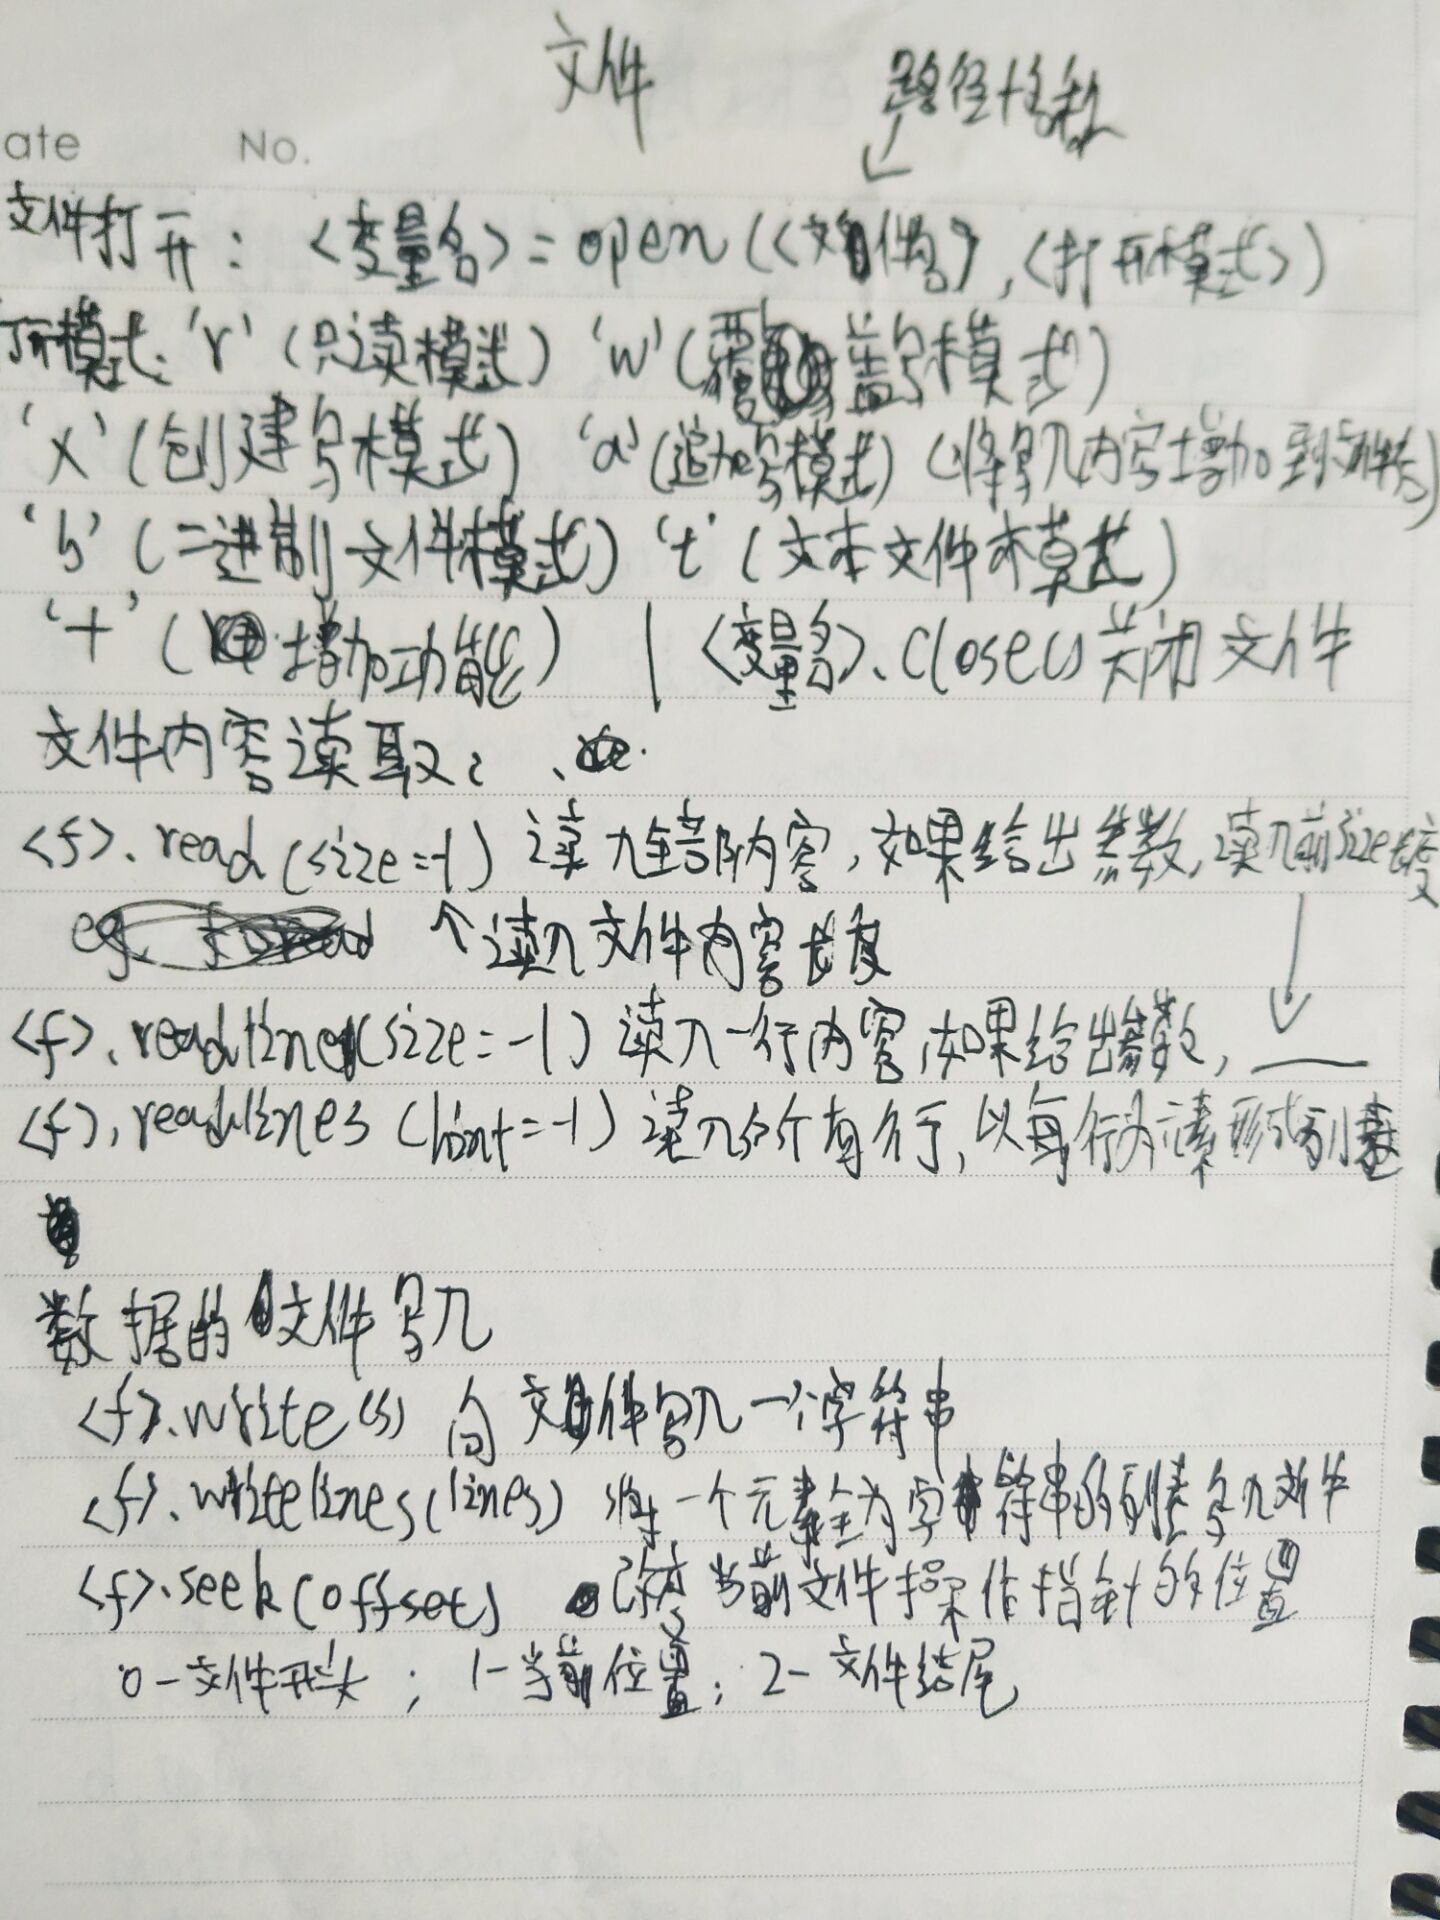 文件
路径+名称
ate No.
文件打开：<变量名>=open(<文件名>,<打开模式>)
打开模式：'r'(只读模式) 'w'(覆盖写模式)
'x'(创建写模式) 'a'(追加写模式)(将写入内容增加到文件尾)
'b'(二进制文件模式) 't'(文本文件模式)
'+'(增加功能) | <变量名>.close()关闭文件
文件内容读取：
<f>.read(size=-1) 读入全部内容,如果给出参数,读入前size长度
eg. ↑读入文件内容长度
<f>.readline(size=-1) 读入一行内容,如果给出参数,
<f>.readlines(hint=-1) 读入所有行,以每行为元素形式列表
数据的文件写入
<f>.write(s) 向文件写入一个字符串
<f>.writelines(lines) 将一个元素全为字符串的列表写入文件
<f>.seek(offset) 改变当前文件操作指针的位置
0-文件开头；1-当前位置；2-文件结尾